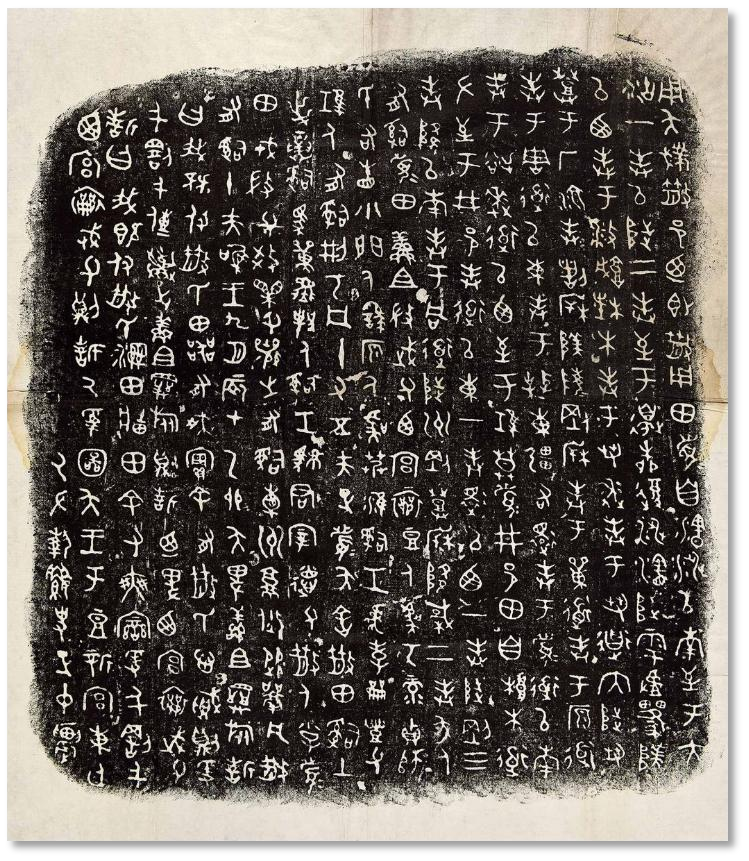 用夨𢦚散邑乃即散用田眉自瀗涉以南至于大
沽一封以陟二封至于邊柳復涉瀗陟雩䖒𨽿𨻰
以西封于播城楮木封于芻逨封于芻道內陟芻
登于厂湶封割柝𨻰陵剛柝封于單道封于原道
封于周道以東封于棹東疆右還封于眉道以南
封于𥎦逨道以西至于堆莫眉井邑田自桹木道
左至于井邑封道以東一封還以西一封陟剛三
封降以南封于同道陟州剛登柝降棫二封夨人
有嗣眉田鮮且微武父西宮襄豆人虞丂彔貞師
氏右眚小門人繇原人虞艿淮嗣工虎孛龠豐父
堆人有嗣刑丂凡十又五夫正眉夨舍散田嗣土
屰寅嗣馬單堒邦人嗣工駷君宰德父散人小子
眉田戎微父效果父襄之有嗣橐州就攸從鬲凡散
有嗣十夫唯王九月辰才乙卯夨俾鮮且𢍰旅誓
曰我既付散氏田器有爽實余有散氏心賊則爰
千罰千傳棄之鮮且𢍰旅則誓乃俾西宮襄武父
誓曰我既付散氏濕田牆田余又爽變爰千罰千
西宮襄武父則誓厥受圖夨王于豆新宮東廷
厥左執要史正中農